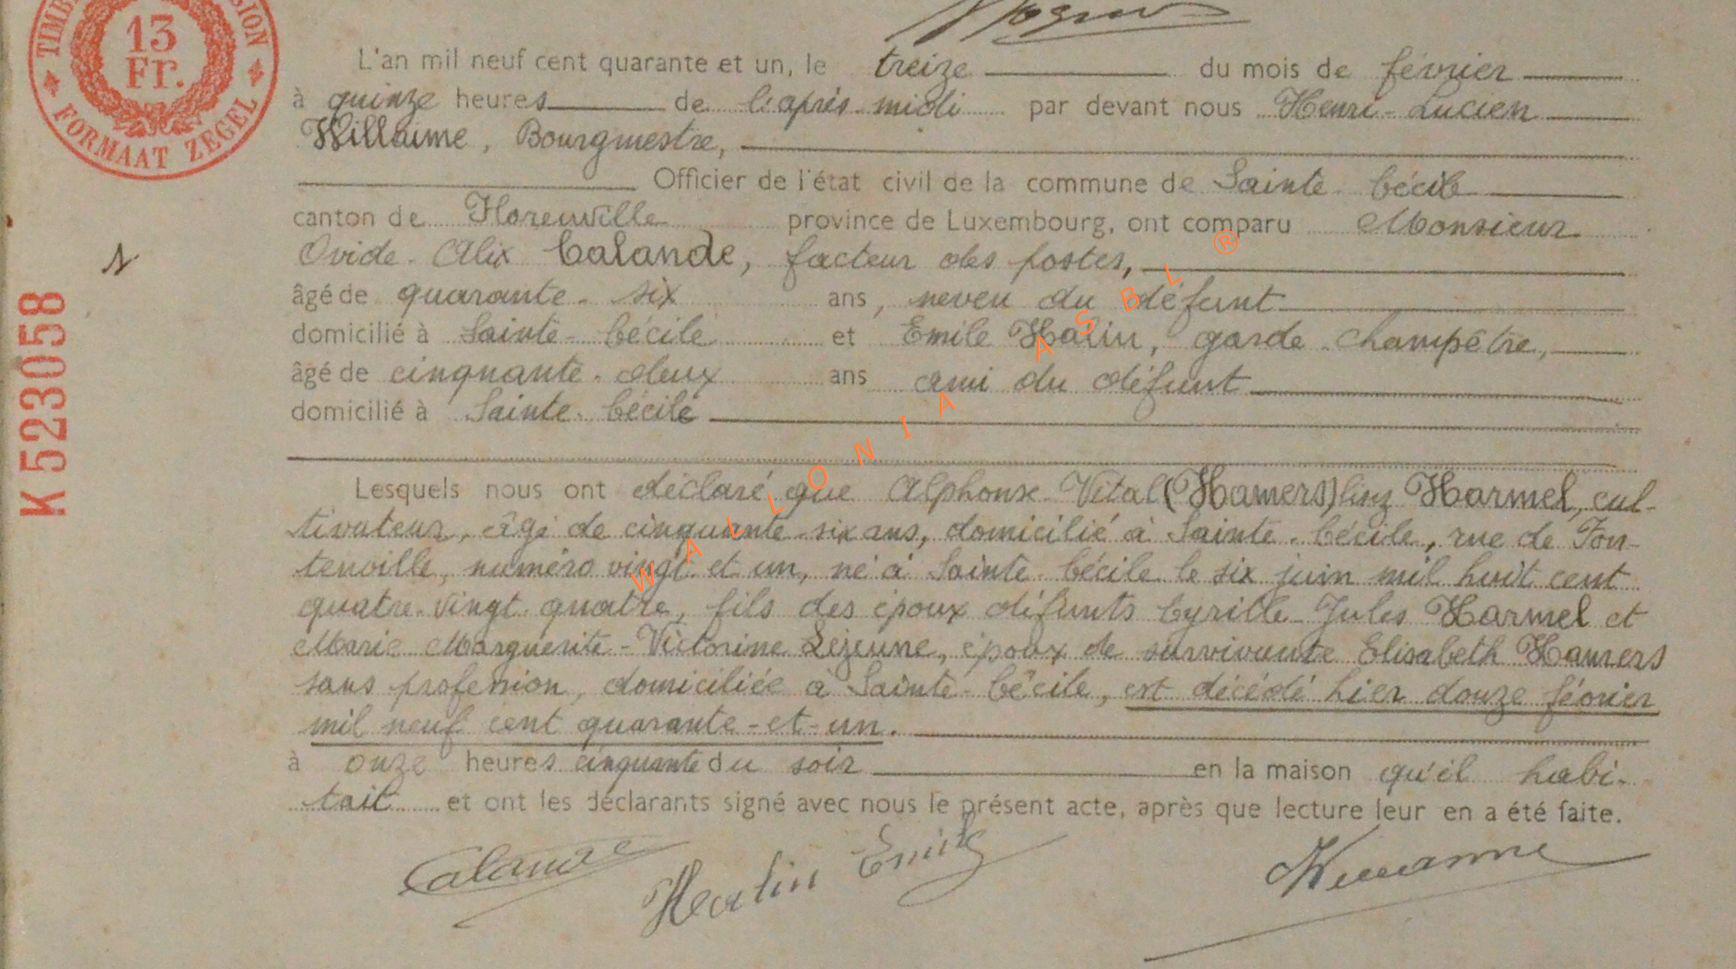 TIMB SION
13
Fr.
FORMAAT ZEGEL
L'an mil neuf cent quarante et un, le treize du mois de février
à quinze heures de l'après-midi par devant nous Henri-Lucien
Willaime, Bourgmestre,
Officier de l'état civil de la commune de Sainte-Cécile
canton de Florenville province de Luxembourg, ont comparu Monsieur
Ovide-Alix Calande, facteur des postes,
âgé de quarante-six ans, neveu du défunt
domicilié à Sainte-Cécile et Emile Halin, garde-champêtre,
âgé de cinquante-deux ans ami du défunt
domicilié à Sainte-Cécile
K523058
Lesquels nous ont déclaré que Alphonse-Vital (Hamers) Harmel, cul-
tivateur, âgé de cinquante-six ans, domicilié à Sainte-Cécile, rue de Fon-
tenoille, numéro vingt-et-un, né à Sainte-Cécile le six juin mil huit cent
quatre-vingt-quatre, fils des époux défunts Cyrille-Jules Harmel et
Marie-Marguerite-Victorine Lejeune, époux de survivante Elisabeth Hamers
sans profession, domiciliée à Sainte-Cécile, est décédé hier douze février
mil neuf cent quarante-et-un.
à onze heures cinquante du soir en la maison qu'il habi-
tait et ont les déclarants signé avec nous le présent acte, après que lecture leur en a été faite.
Calande Halin Emile
WALLONIA ASBL ®